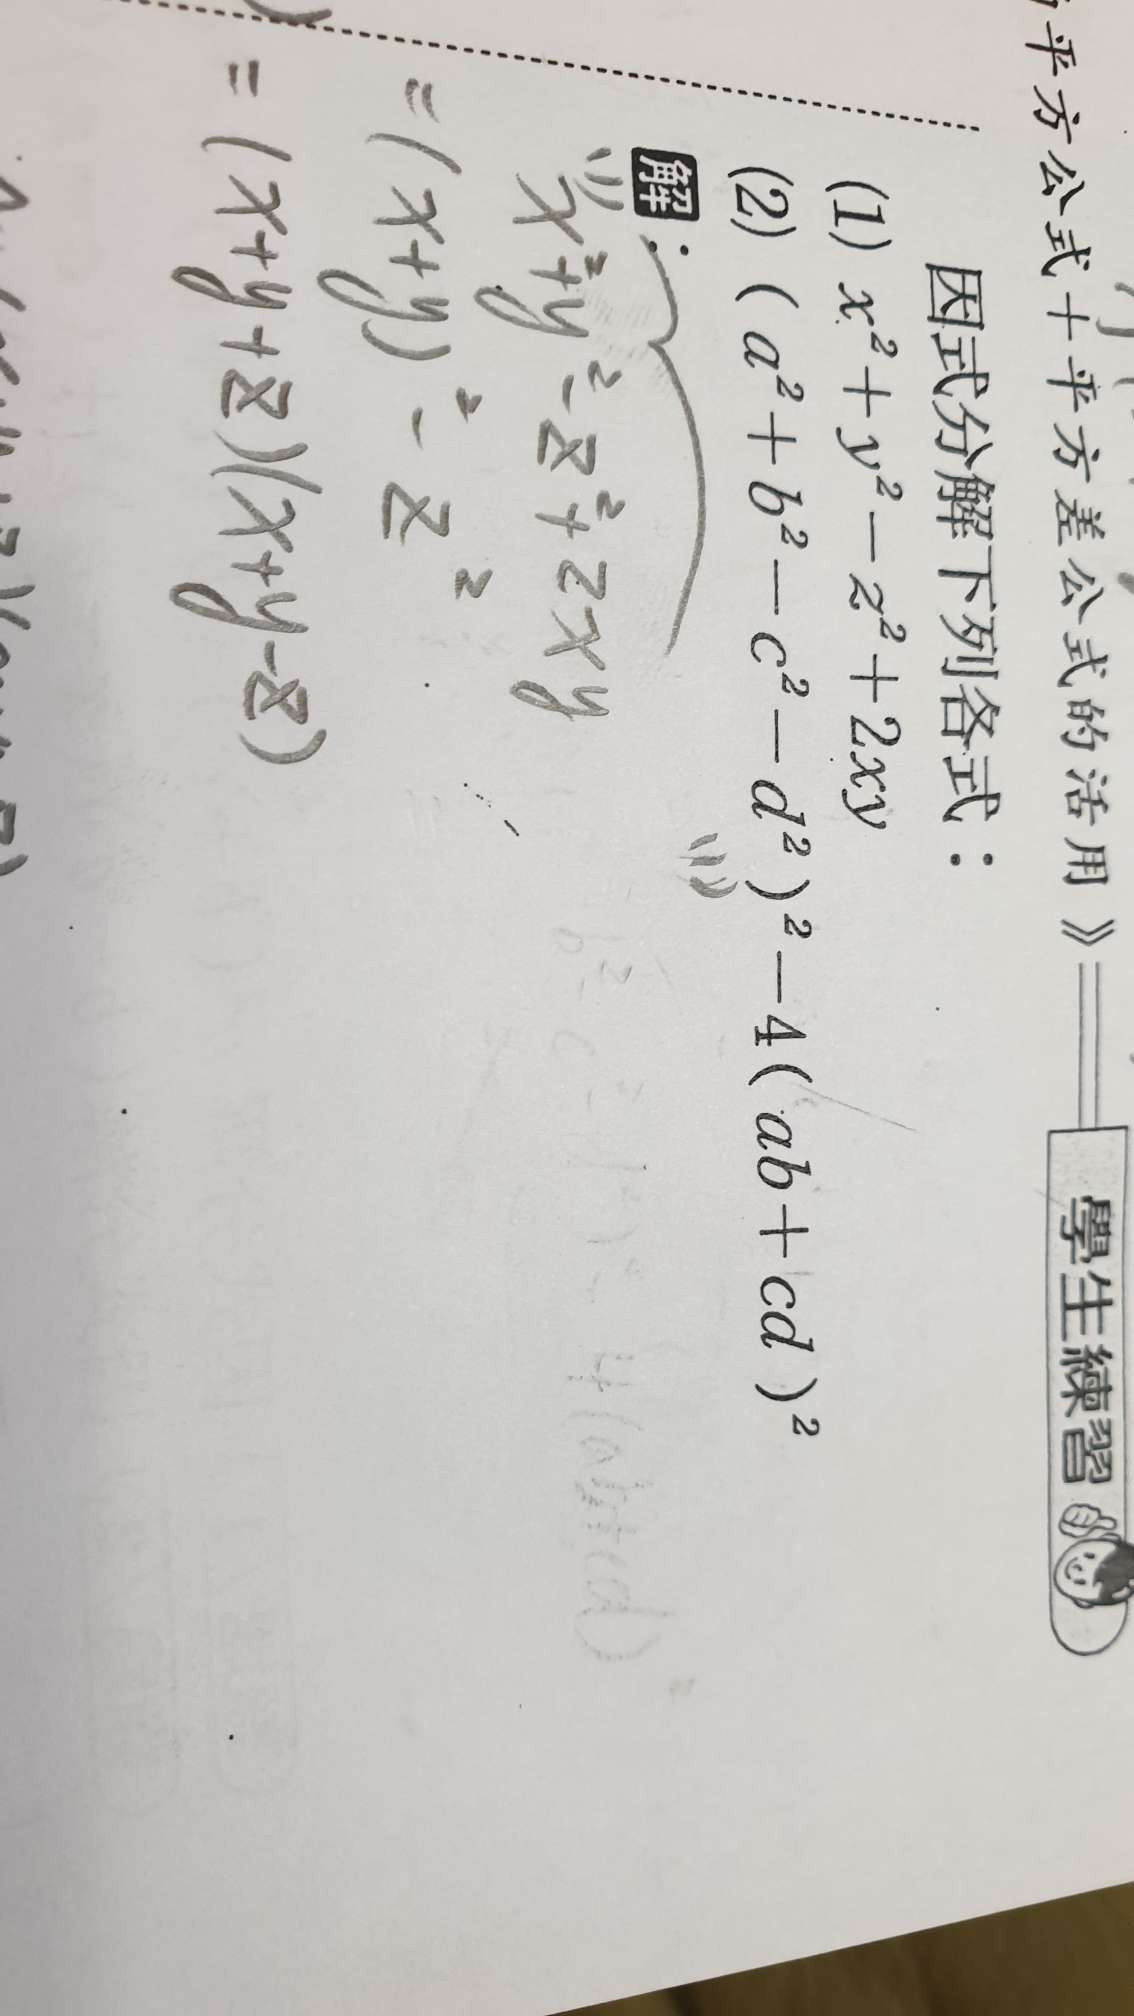 平方公式+平方差公式的活用》 學生練習
因式分解下列各式：
(1) x²+y²-z²+2xy
(2) (a²+b²-c²-d²)²-4(ab+cd)²
解：
x²+y²-z²+2xy
=(x+y)²-z²
=(x+y+z)(x+y-z)